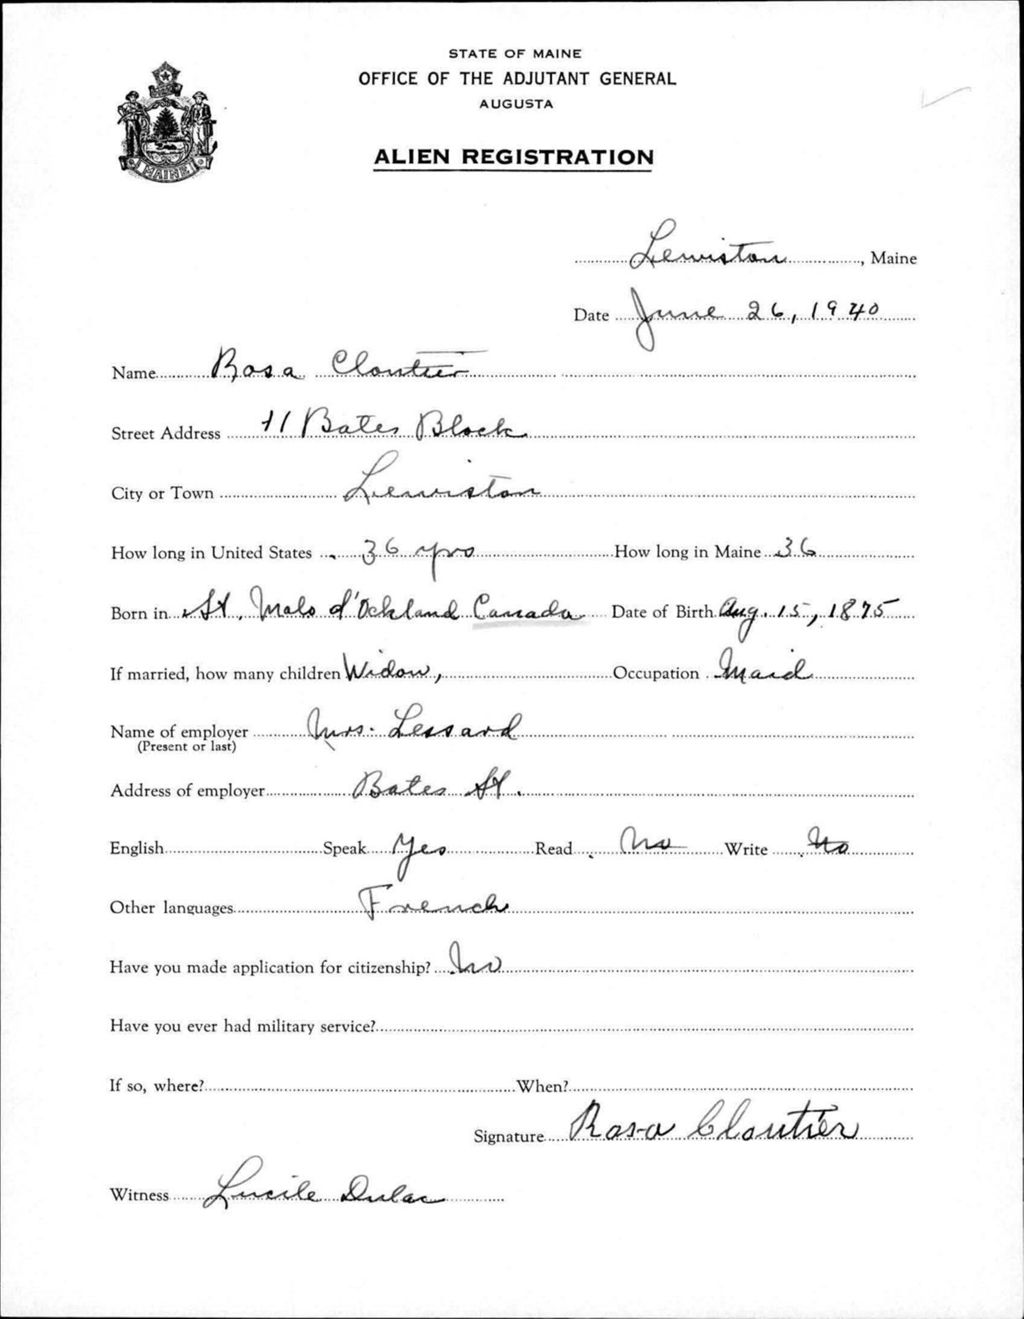 STATE OF MAINE
OFFICE OF THE ADJUTANT GENERAL
AUGUSTA
MAINE
ALIEN REGISTRATION
Lewiston, Maine
Date June 26, 1940
Name Rosa Cloutier
Street Address 11 Bates Block
City or Town Lewiston
How long in United States 36 yrs How long in Maine 36
Born in St. Malo d'Ockland Canada Date of Birth Aug. 15, 1875
If married, how many children Widow, Occupation Maid
Name of employer Mrs. Lessard
(Present or last)
Address of employer Bates St.
English Speak Yes Read No Write No
Other languages French
Have you made application for citizenship? No
Have you ever had military service?
If so, where? When?
Signature Rosa Cloutier
Witness Lucile Dulac